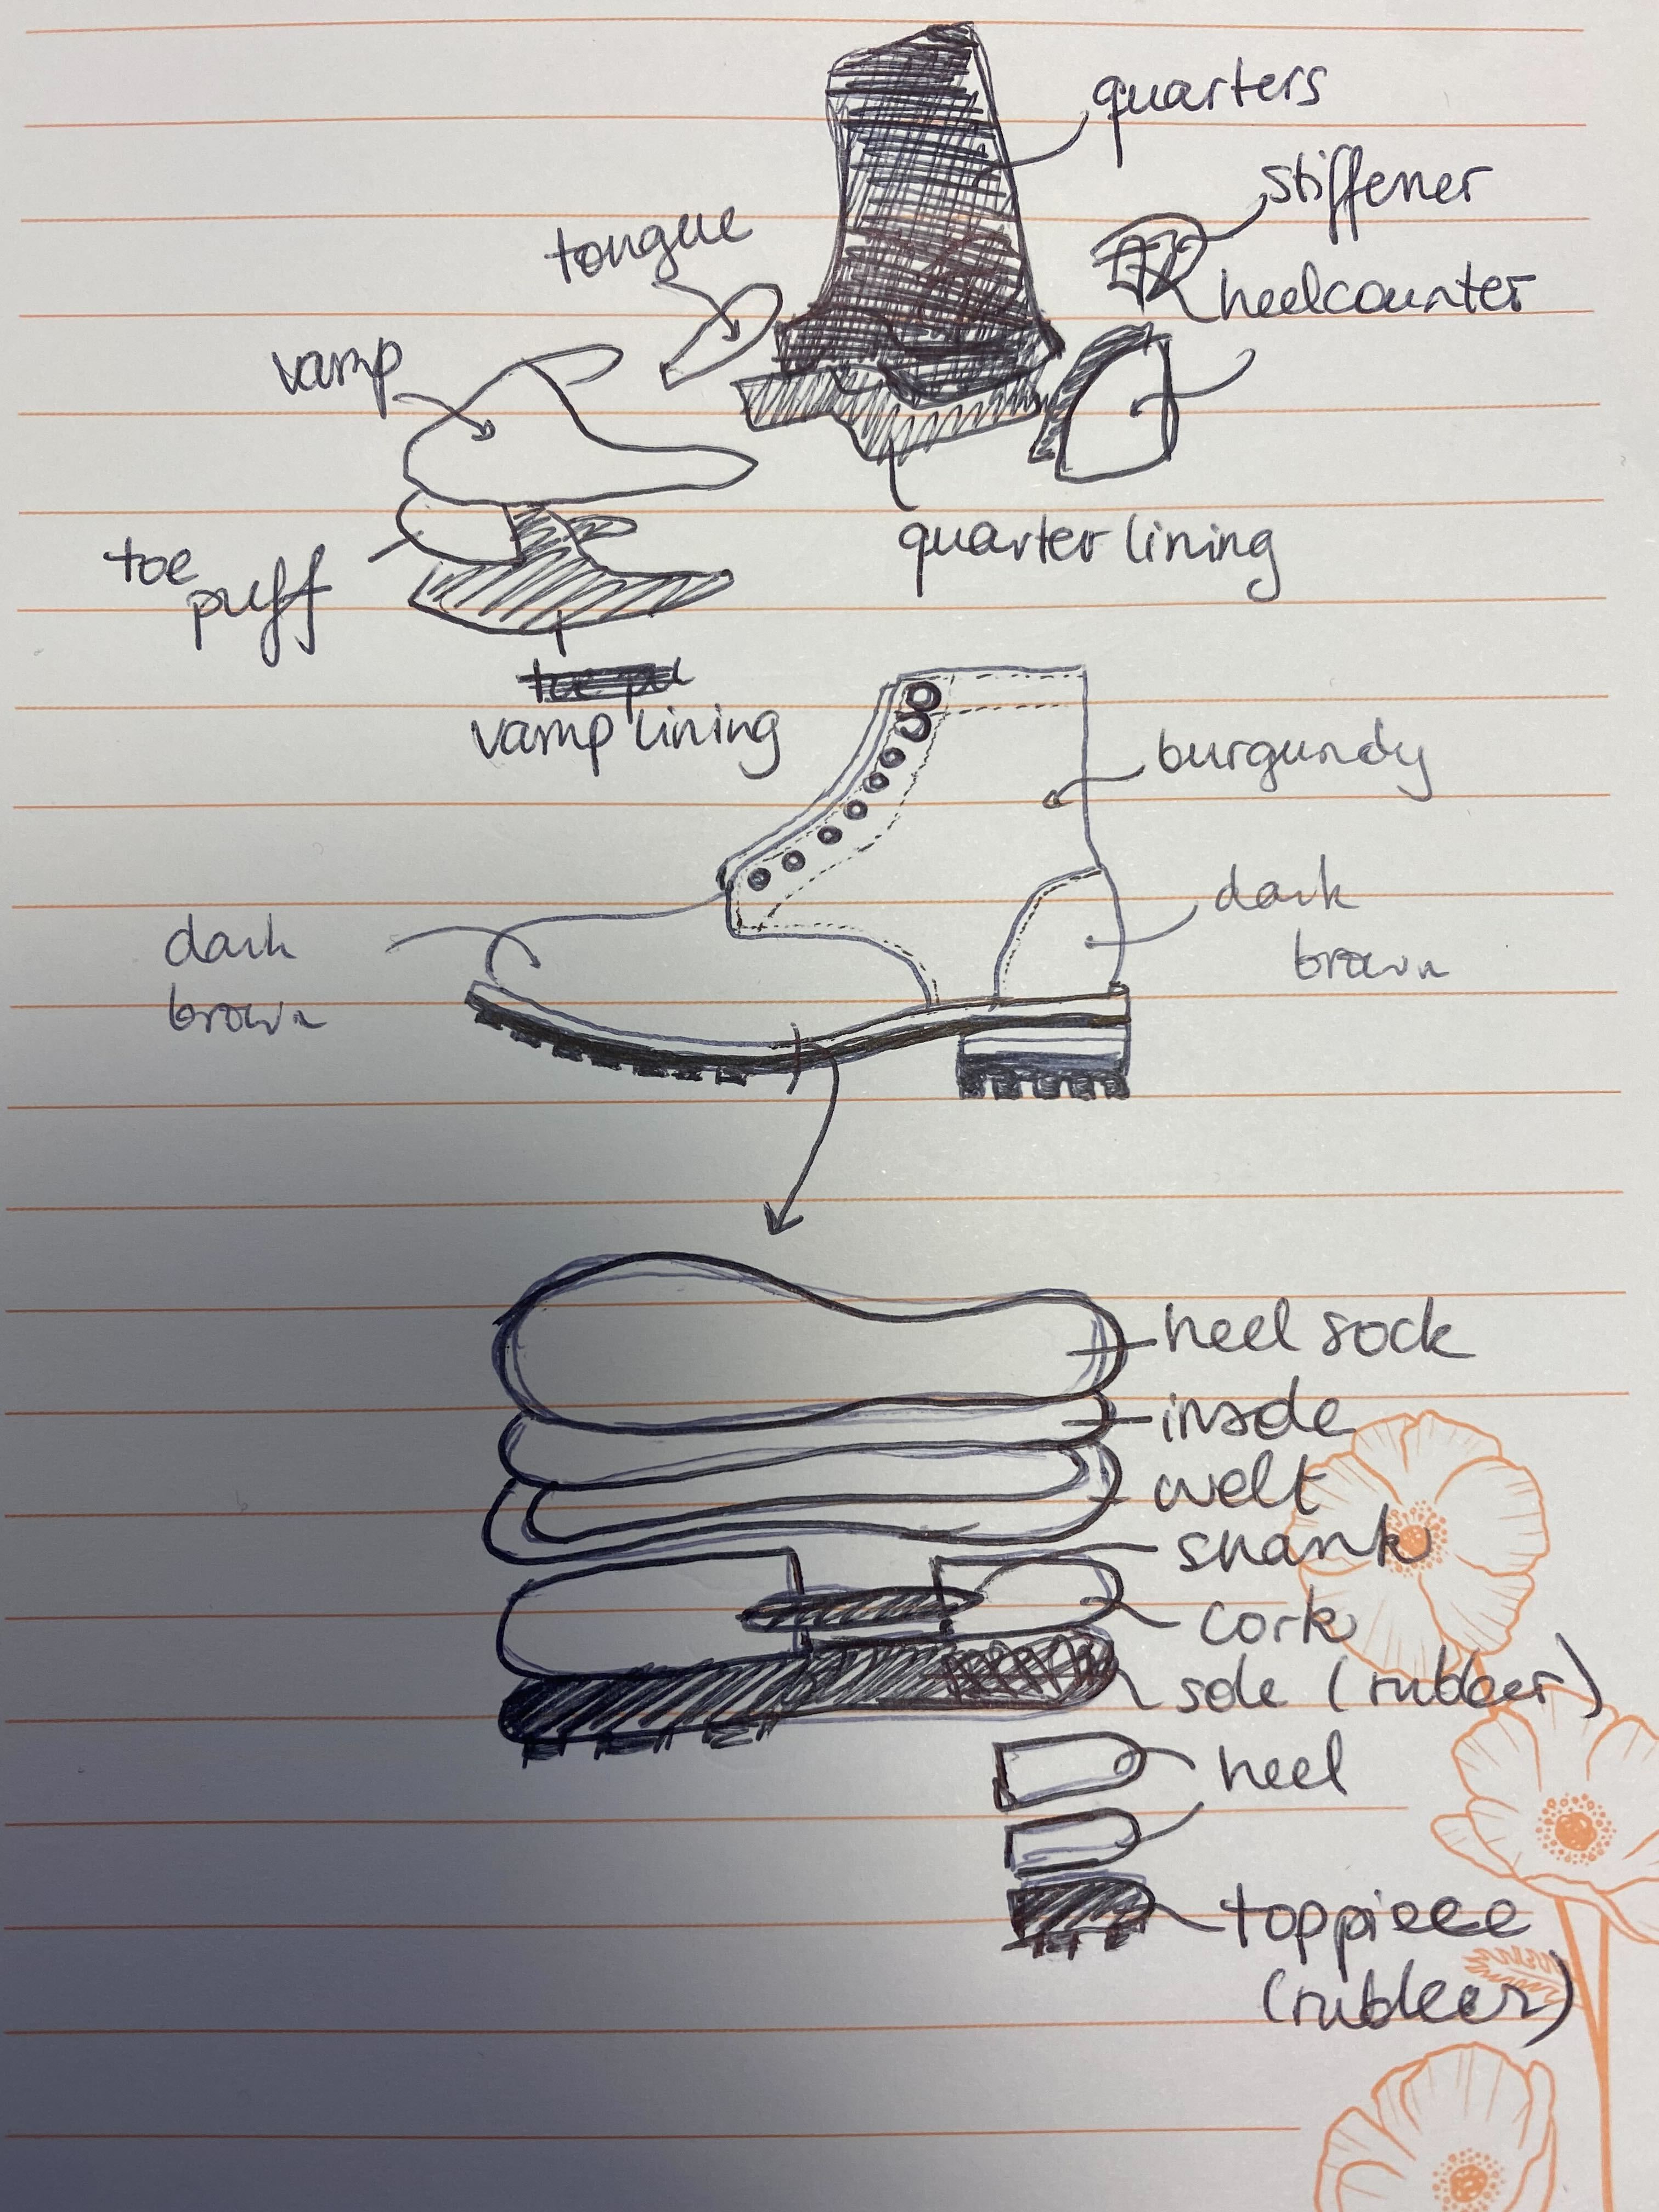 quarters
stiffener
tongue
heelcounter
vamp
quarter lining
toe
puff
vamp lining
burgundy
dark
brown
dark
brown
heel sock
insole
welt
shank
cork
sole (rubber)
heel
toppiece
(rubber)